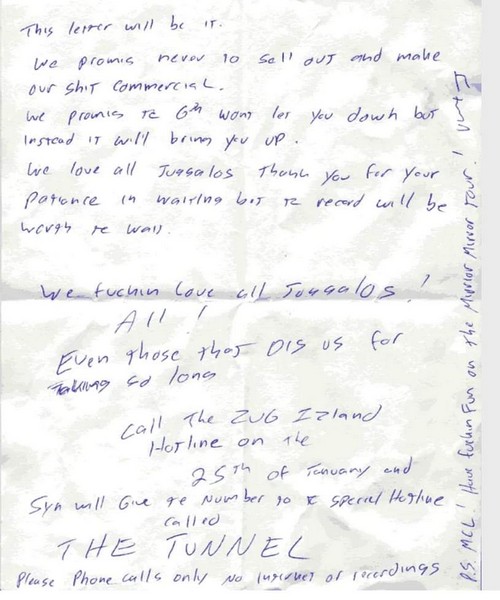 This letter will be it.
We promis never to sell out and make
our shit commercial.
We promis te 6th wont let you down but
Instead it will bring you up.
We love all Juggalos Thank you for your
Patience in waiting but te record will be
worth te wait.
We fuckin Love all Juggalos!
All!
Even those that DIS us for
taking so long
Call The ZUG IZland
Hotline on the
25th of January and
Syn will Give te Number to a special Hotline
called
THE TUNNEL
Please Phone calls only No internet or recordings
P.S. MCL! Have fuckin Fun on the Mirror Mirror Tour!